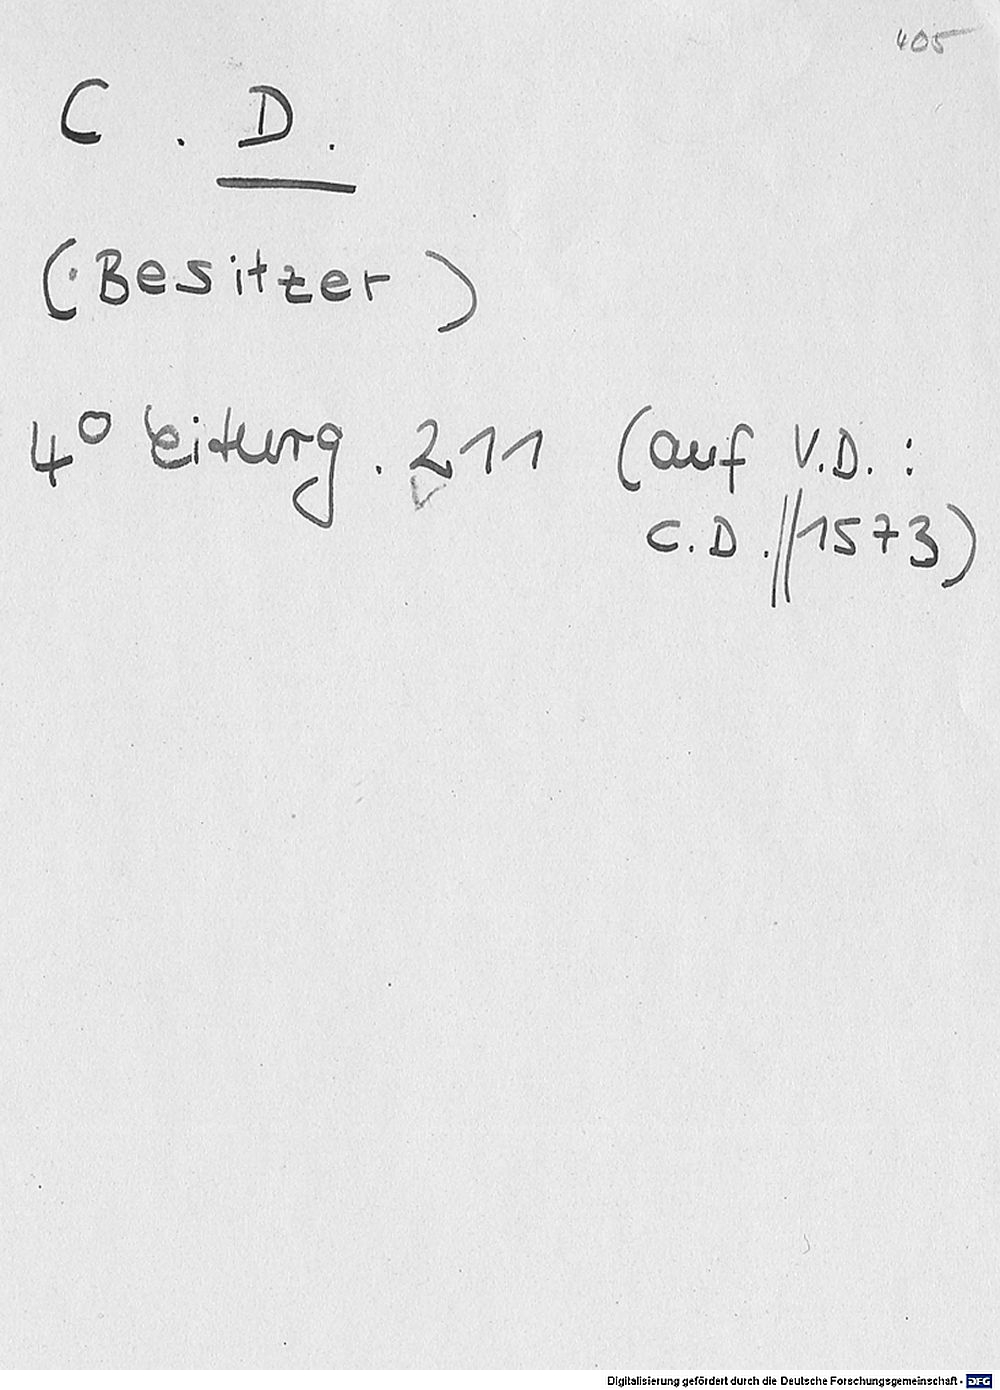 405
C . D .
(Besitzer)
4° Liturg. 211 (auf V.D.:
C.D.//1573)
Digitalisierung gefördert durch die Deutsche Forschungsgemeinschaft - DFG